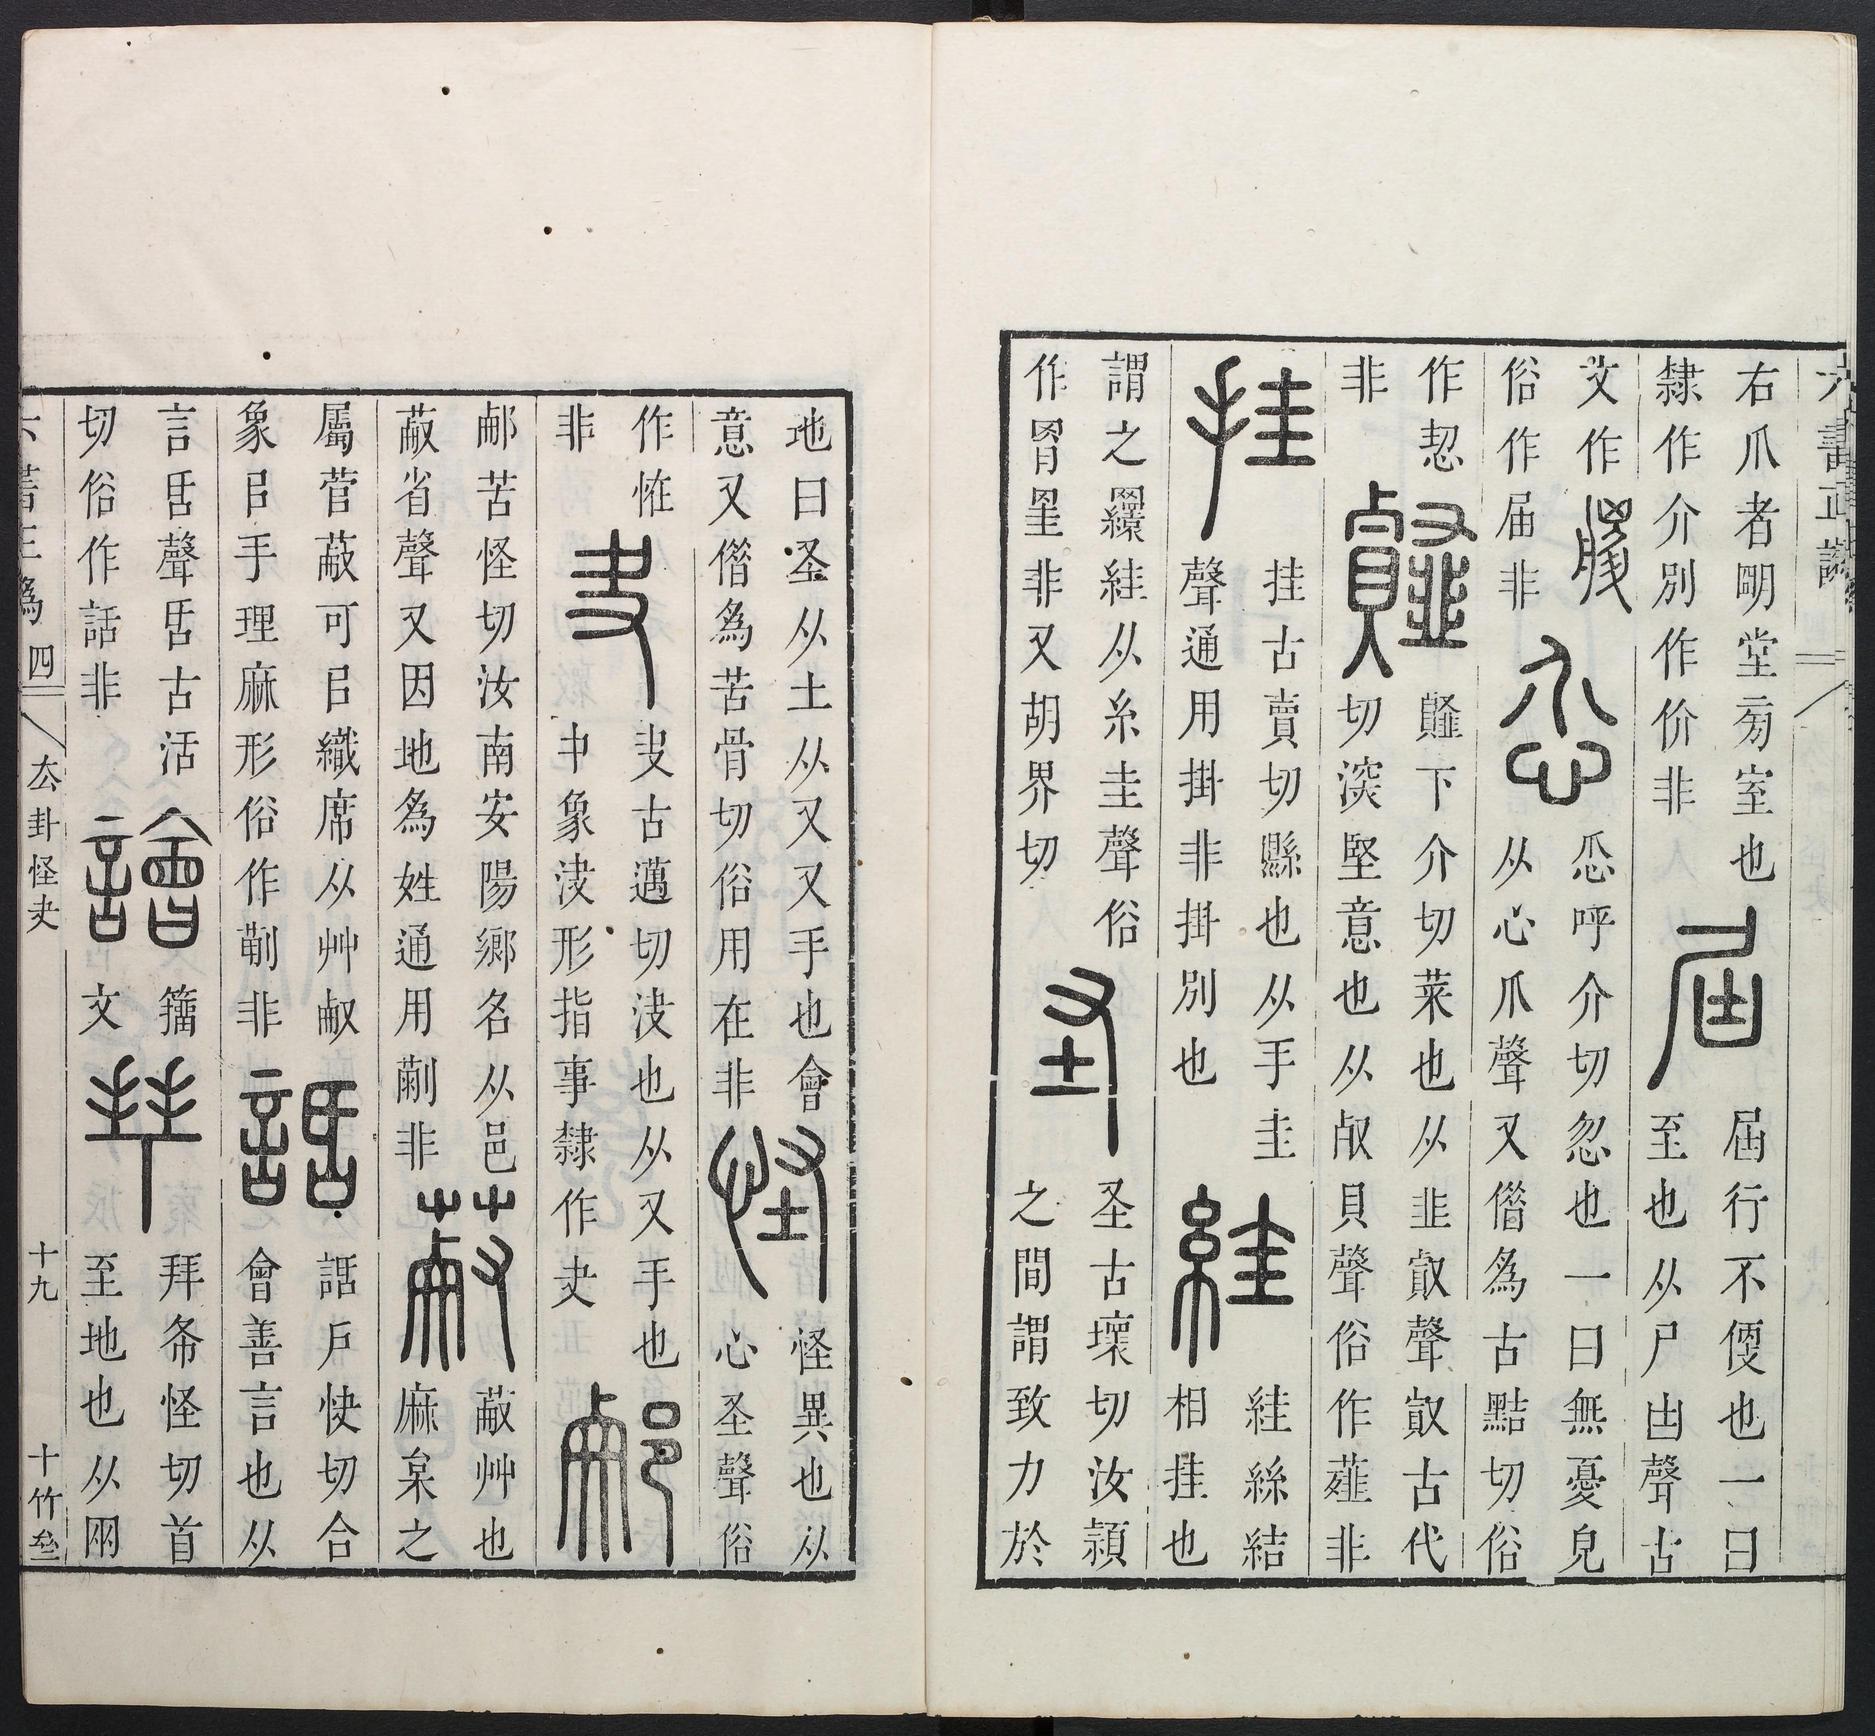 六書正譌
右爪者朙堂㫄室也
隸作介別作价非
屆
屆行不便也一曰
至也从尸凷聲古
文作
俗作届非
忥呼介切忽也一曰無憂皃
从心介聲又借爲古黠切俗
作恝
非
下介切菜也从韭叡聲叡古代
切深堅意也从𣦼貝聲俗作薤非
挂
挂古賣切縣也从手圭
聲通用掛非掛別也
絓
絓絲結
相挂也
謂之繯絓从糸圭聲俗
作罥罣非又胡界切
圣
圣古壞切汝潁
之間謂致力於
地曰圣从土从又又手也會
意又借爲苦骨切俗用在非
怪
怪異也从
心圣聲俗
作恠
非
叏
叏古邁切决也从又手也
中象决形指事隸作夬
苦怪切汝南安陽鄉名从邑
蔽省聲又因地爲姓通用蒯非
蔽艸也
麻枲之
屬菅蔽可㠯織席从艸㕟
象㠯手理麻形俗作蒯非
話
話戶快切合
會善言也从
言𠯑聲𠯑古活
切俗作話非
譮
籒
文
拜
拜布怪切首
至地也从兩
六書正譌 四 去卦怪夬 十九 十竹齋